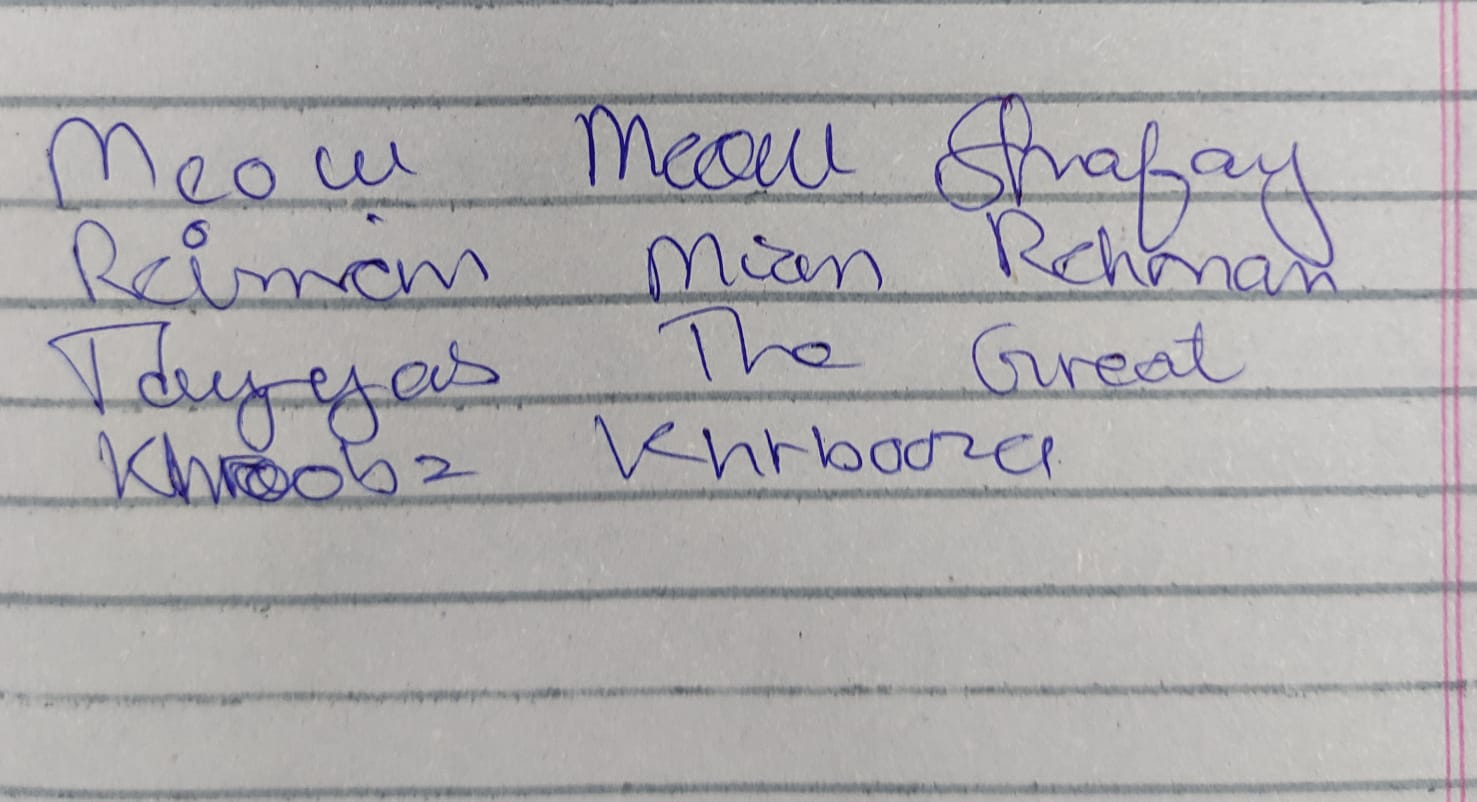 Meow Meow Shafay
Reimam Mian Rehman
Tayyab The Great
Khroobz Khrbooza